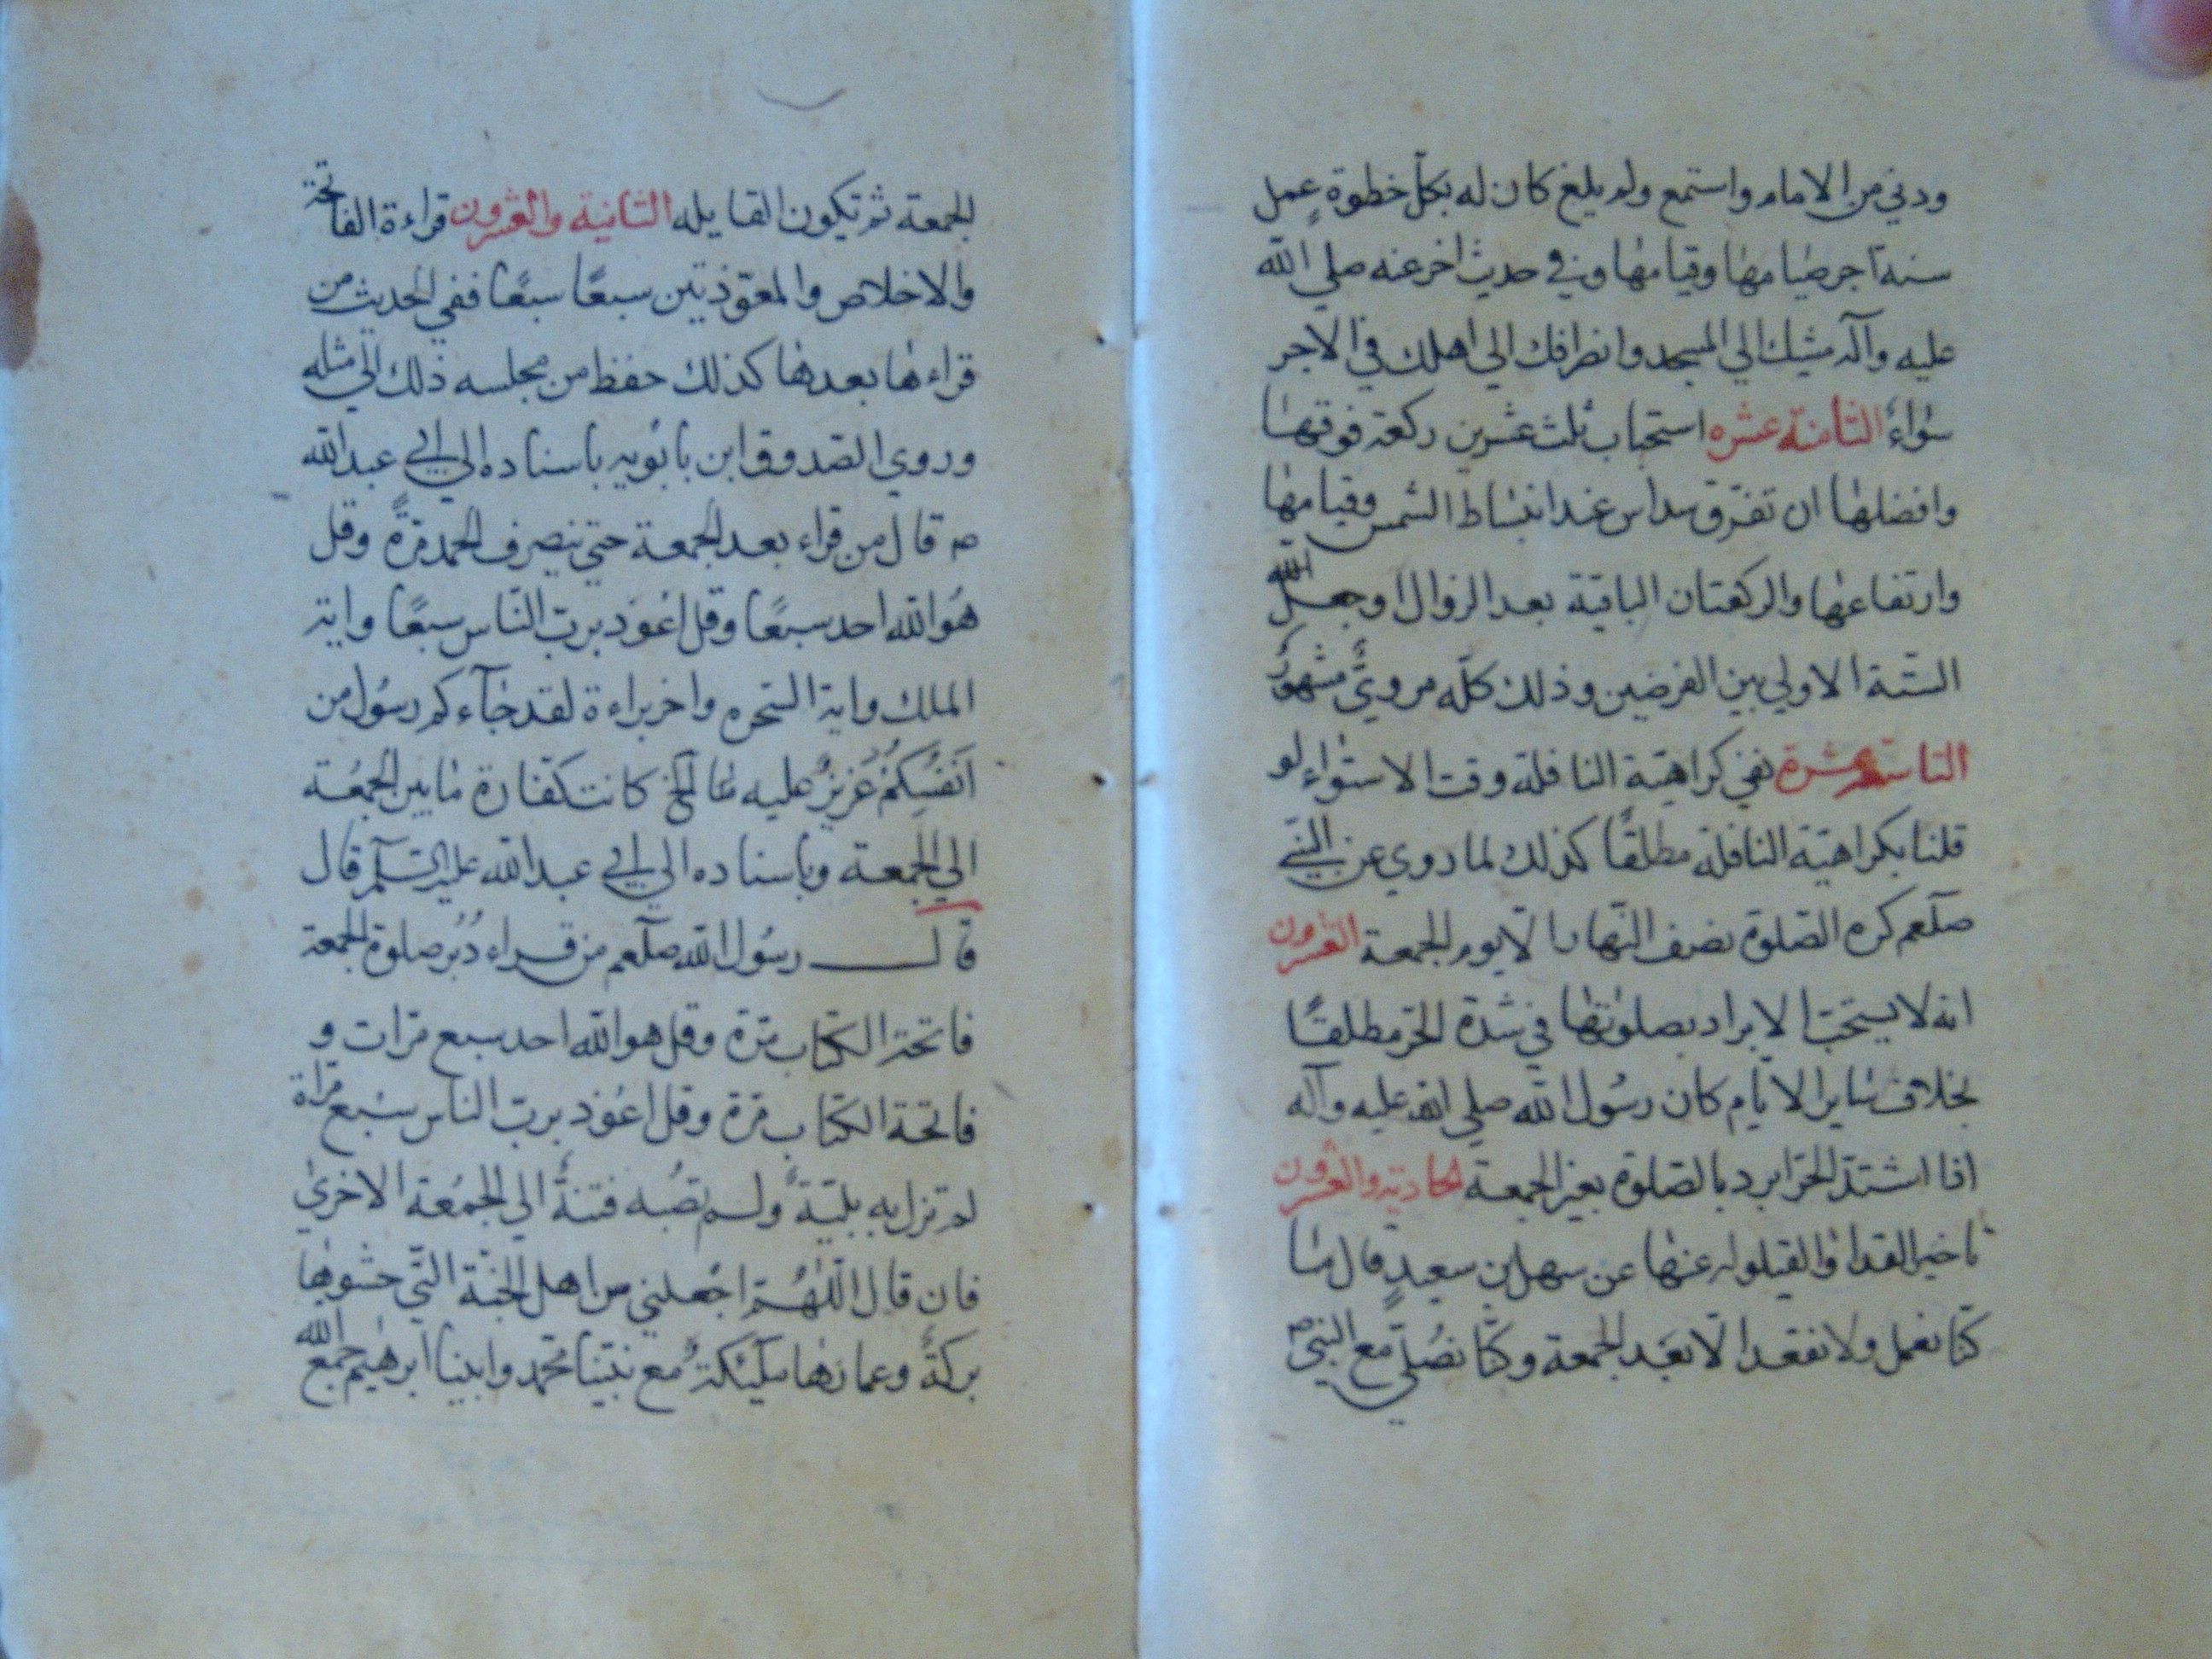 ودني من الامام واستمع ولم يلغ كان له بكل خطوة عمل
سنة اجر صيامها وقيامها وفي حديث اخر عنه صلي الله
عليه وآله مشيك الي المسجد وانصرافك الي اهلك في الاجر
سواء الثامنة عشره استحباب ثلث عشرين ركعة فوقها
وافضلها ان تفرق سداس عند انبساط الشمس وقيامها
وارتفاعها والركعتان الباقية بعد الزوال او جعل الله
الستة الاولي بين الفرضين وذلك كله مروي مشهور
التاسعة عشرة نفي كراهية النافلة وقت الاستواء لو
قلنا بكراهية النافلة مطلقا كذلك لما روي عن النبي
صلعم كره الصلوة نصف النهار الا يوم الجمعة العشرون
انه لا يستحب الابراد بصلوتها في شدة الحر مطلقا
بخلاف ساير الايام كان رسول الله صلي الله عليه وآله
اذا اشتد الحر ابرد بالصلوة بغير الجمعة الحادية والعشرون
تاخير الغداء والقيلوله عنها عن سهل بن سعيد قال ما
كنا نعمل ولا نفقد الا بعد الجمعة وكنا نصلي مع النبي ص
الجمعة ثم تكون القايله الثانية والعشرون قراءة الفاتحة
والاخلاص والمعوذتين سبعا سبعا ففي الحديث من
قراءها بعدها كذلك حفظ من مجلسه ذلك الي مثله
وروي الصدوق ابن بابويه باسناده الي ابي عبد الله
ع قال من قراء بعد الجمعة حتي ينصرف الحمد مرة وقل
هو الله احد سبعا وقل اعوذ برب الناس سبعا واية
الملك واية السخره واخر براءة لقد جآءكم رسول من
انفسكم عزيز عليه ما الخ كانت كفارة ما بين الجمعة
الي الجمعة وباسناده الي ابي عبد الله عليه السلم قال
قال رسول الله صلعم من قراء دبر صلوة الجمعة
فاتحة الكتاب مرة وقل هو الله احد سبع مرات و
فاتحة الكتاب مرة وقل اعوذ برب الناس سبع مراة
لم تنزل به بلية ولم تصبه فتنة الي الجمعة الاخري
فان قال اللهم اجعلني من اهل الجنة التي حشوها
بركة وعمارها ملٓئكة مع نبينا محمد وابينا ابرهيم جمع الله